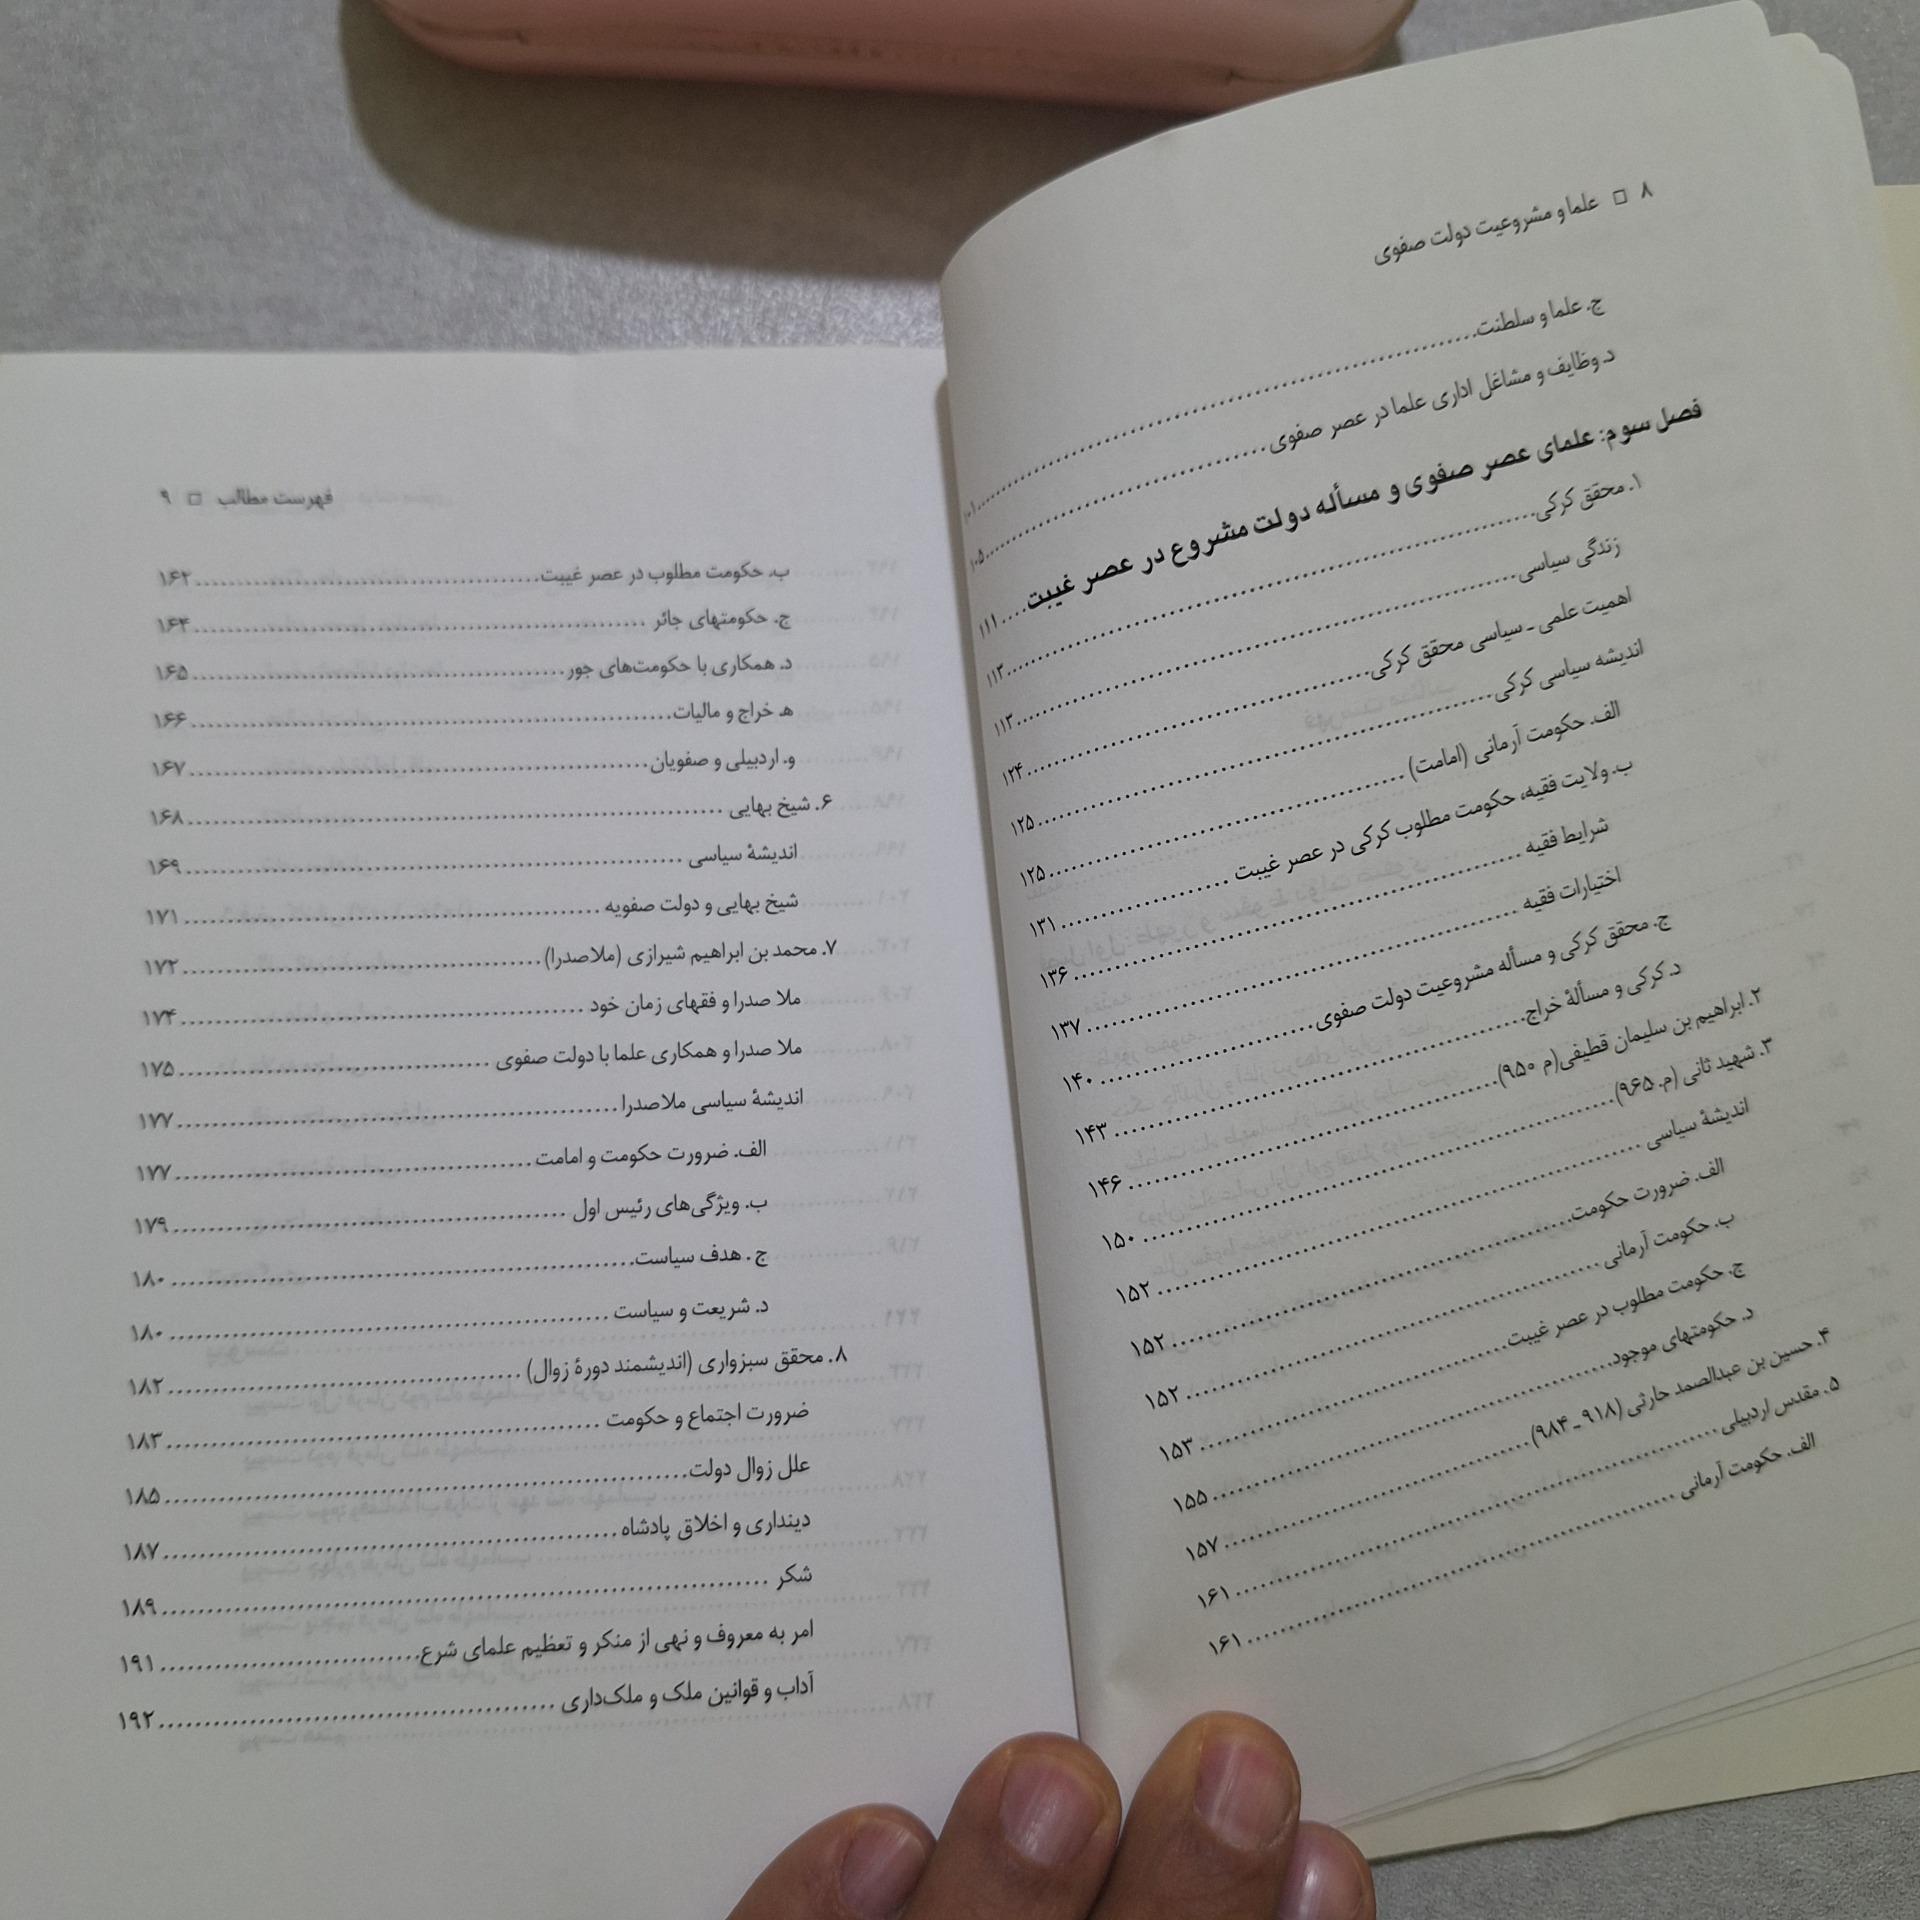 ۸ □ علما و مشروعیت دولت صفوی
ج. علما و سلطنت ........ ۱۰۱
د. وظایف و مشاغل اداری علما در عصر صفوی ........ ۱۰۵
فصل سوم: علمای عصر صفوی و مسأله دولت مشروع در عصر غیبت .... ۱۱۱
۱. محقق کرکی ........ ۱۱۳
زندگی سیاسی ........ ۱۱۳
اهمیت علمی ـ سیاسی محقق کرکی ........ ۱۲۴
اندیشه سیاسی کرکی ........ ۱۲۵
الف. حکومت آرمانی (امامت) ........ ۱۲۵
ب. ولایت فقیه، حکومت مطلوب کرکی در عصر غیبت ........ ۱۳۱
شرایط فقیه ........ ۱۳۶
اختیارات فقیه ........ ۱۳۷
ج. محقق کرکی و مسأله مشروعیت دولت صفوی ........ ۱۴۰
د. کرکی و مسألۀ خراج ........ ۱۴۳
۲. ابراهیم بن سلیمان قطیفی(م ۹۵۰) ........ ۱۴۶
۳. شهید ثانی (م. ۹۶۵) ........ ۱۵۰
اندیشۀ سیاسی ........ ۱۵۲
الف. ضرورت حکومت ........ ۱۵۲
ب. حکومت آرمانی ........ ۱۵۲
ج. حکومت مطلوب در عصر غیبت ........ ۱۵۳
د. حکومتهای موجود ........ ۱۵۵
۴. حسین بن عبدالصمد حارثی (۹۱۸ ـ ۹۸۴) ........ ۱۵۷
۵. مقدس اردبیلی ........ ۱۶۱
الف. حکومت آرمانی ........ ۱۶۱
فهرست مطالب □ ۹
ب. حکومت مطلوب در عصر غیبت ........ ۱۶۲
ج. حکومتهای جائر ........ ۱۶۴
د. همکاری با حکومت‌های جور ........ ۱۶۵
ه‍ خراج و مالیات ........ ۱۶۶
و. اردبیلی و صفویان ........ ۱۶۷
۶. شیخ بهایی ........ ۱۶۸
اندیشۀ سیاسی ........ ۱۶۹
شیخ بهایی و دولت صفویه ........ ۱۷۱
۷. محمد بن ابراهیم شیرازی (ملاصدرا) ........ ۱۷۲
ملا صدرا و فقهای زمان خود ........ ۱۷۴
ملا صدرا و همکاری علما با دولت صفوی ........ ۱۷۵
اندیشۀ سیاسی ملاصدرا ........ ۱۷۷
الف. ضرورت حکومت و امامت ........ ۱۷۷
ب. ویژگی‌های رئیس اول ........ ۱۷۹
ج . هدف سیاست ........ ۱۸۰
د. شریعت و سیاست ........ ۱۸۰
۸. محقق سبزواری (اندیشمند دورۀ زوال) ........ ۱۸۲
ضرورت اجتماع و حکومت ........ ۱۸۳
علل زوال دولت ........ ۱۸۵
دینداری و اخلاق پادشاه ........ ۱۸۷
شکر ........ ۱۸۹
امر به معروف و نهی از منکر و تعظیم علمای شرع ........ ۱۹۱
آداب و قوانین ملک و ملک‌داری ........ ۱۹۲